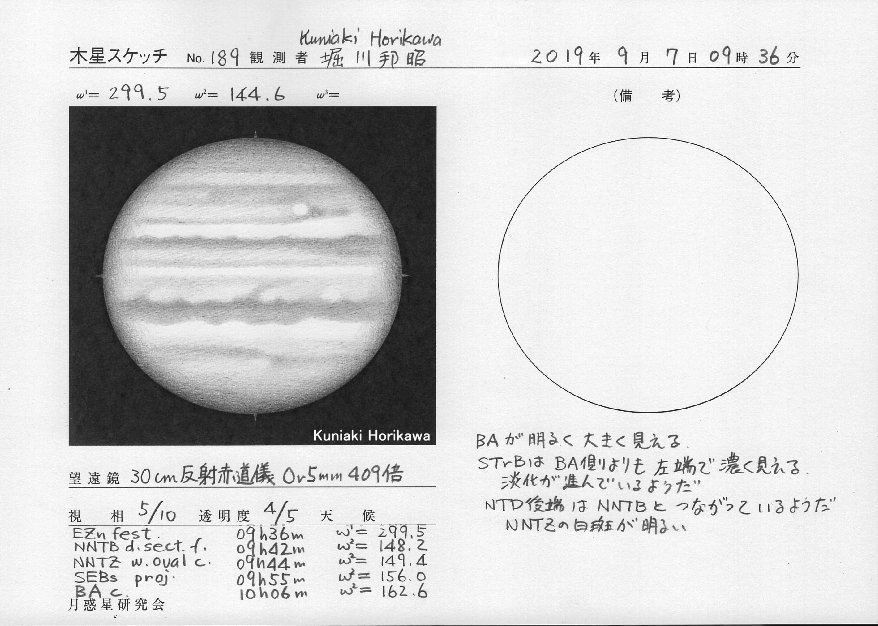 Kuniaki Horikawa
木星スケッチ No. 189 観測者 堀川邦昭 2019年 9月 7日 09時 36分
ω¹= 299.5 ω²= 144.6 ω³=
(備 考)
Kuniaki Horikawa
BAが明るく大きく見える.
STrBはBA側よりも左端で濃く見える.
淡化が進んでいるようだ
NTD後端はNNTBとつながっているようだ
NNTZの白斑が明るい
望遠鏡 30cm反射赤道儀 Or5mm 409倍
視 相 5/10 透明度 4/5 天 候
EZn fest. 09h36m ω¹= 299.5
NNTB d.sect.f. 09h42m ω²= 148.2
NNTZ w.oval c. 09h44m ω²= 149.4
SEBs proj. 09h55m ω²= 156.0
BA c. 10h06m ω²= 162.6
月惑星研究会